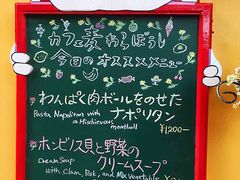 カフェ麦わらぼうし
今日のオススメメニュー
わんぱく肉ボールをのせた
ナポリタン
Pasta Napolitan with
a Mischievous
meatball
¥1200-
ホンビノス貝と野菜の
クリームスープ
Cream Soup
with Clam, Pork, and Mix Vegetable